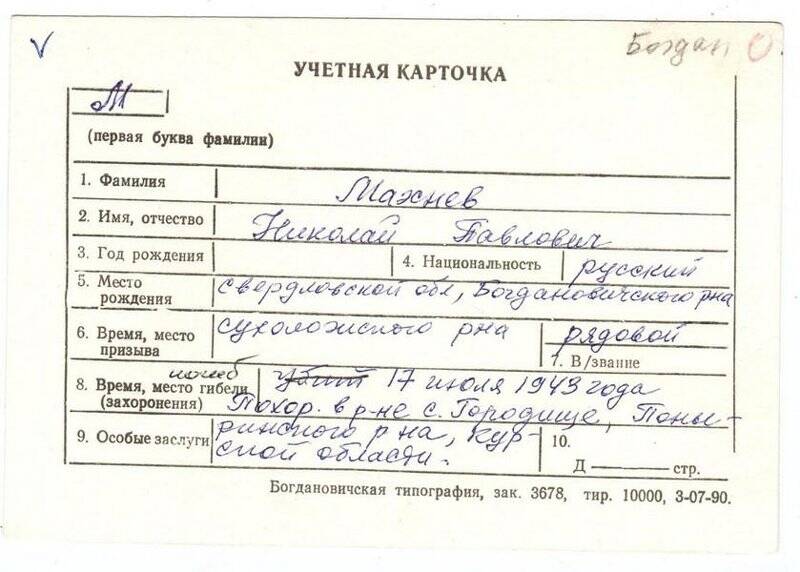 V Богдан О
УЧЕТНАЯ КАРТОЧКА
М
(первая буква фамилии)
1. Фамилия Махнев
2. Имя, отчество Николай Павлович
3. Год рождения 4. Национальность русский
5. Место рождения свердловской обл, Богдановичского рна
6. Время, место призыва сухоложского рна рядовой
7. В/звание
погиб
8. Время, место гибели убит 17 июля 1943 года
(захоронения) Похор. в р-не с. Городище, Поны-
9. Особые заслуги ринского рна, Кур- 10.
ской области.
Д — стр.
Богдановичская типография, зак. 3678, тир. 10000, 3-07-90.